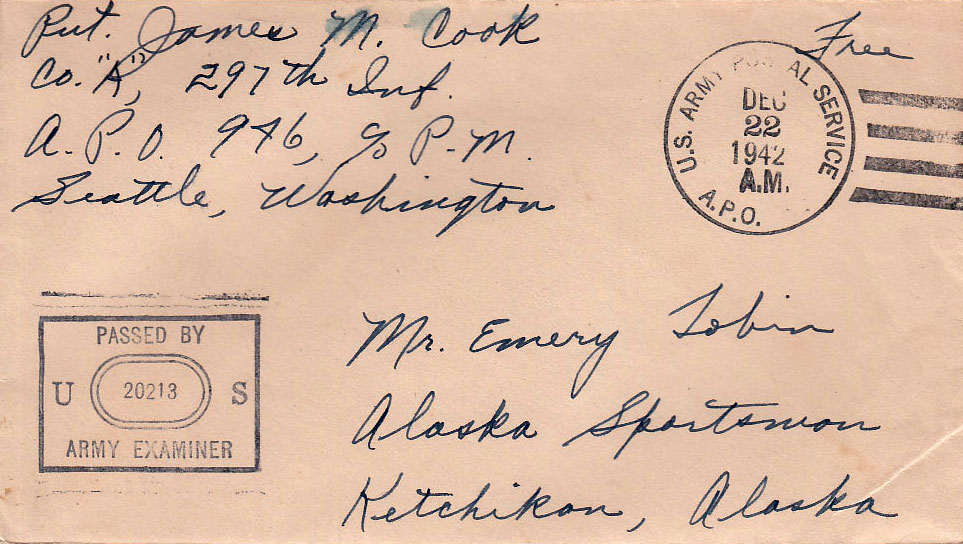 Pvt. James M. Cook
Co. "A", 297th Inf.
A.P.O. 946, c/o P.M.
Seattle, Washington
Free
U.S. ARMY POSTAL SERVICE
DEC
22
1942
A.M.
A.P.O.
PASSED BY
U 20213 S
ARMY EXAMINER
Mr. Emery Tobin
Alaska Sportsman
Ketchikan, Alaska